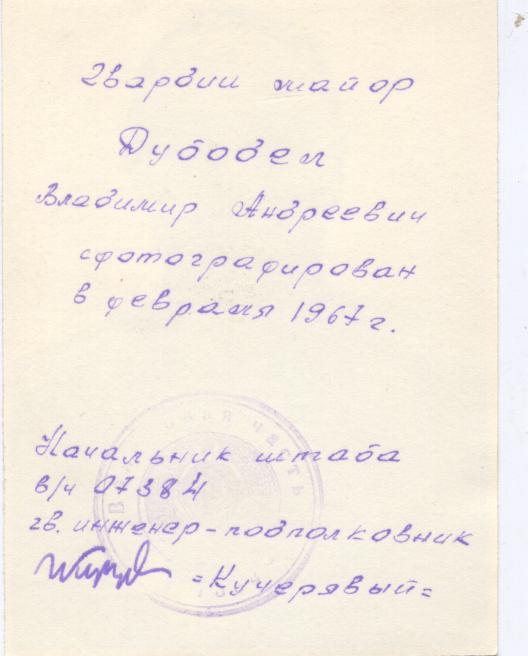 Гвардии майор
Дубодел
Владимир Андреевич
сфотографирован
в февраля 1967 г.
ЧАСТЬ
Начальник штаба
в/ч 07384
гв. инженер-подполковник
=Кучерявый=